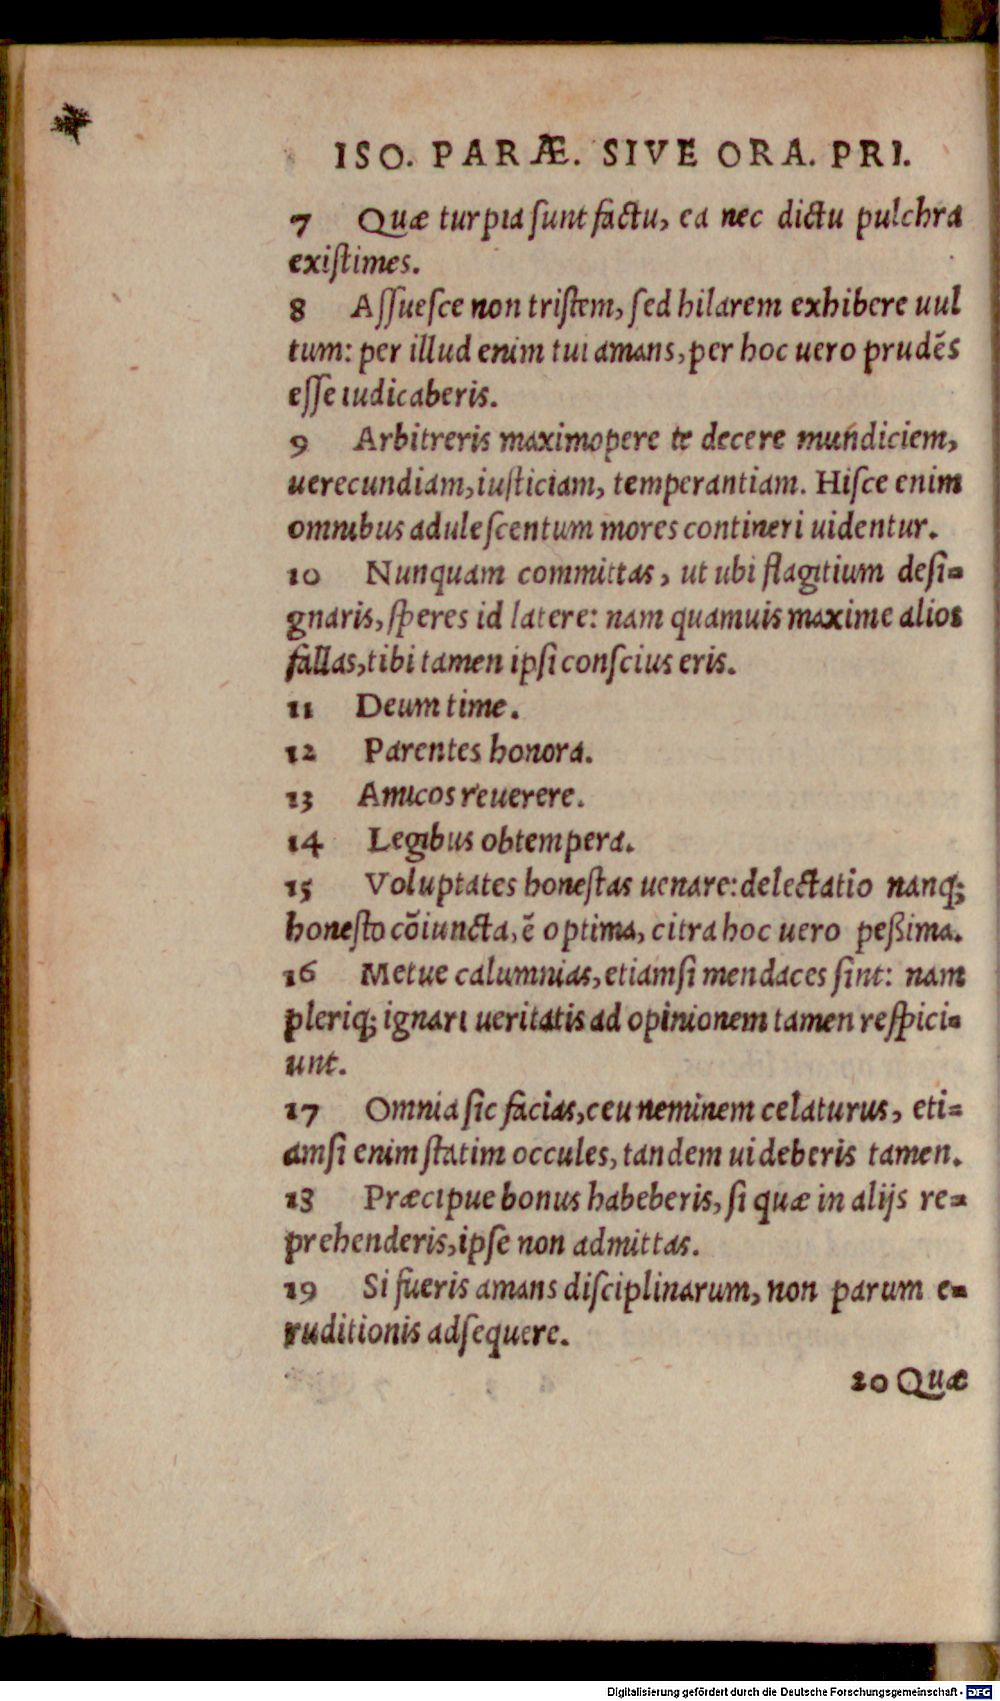 ISO. PARÆ. SIVE ORA. PRI.
7 Quæ turpia ſunt factu, ea nec dictu pulchra
exiſtimes.
8 Aſſueſce non triſtem, ſed hilarem exhibere uul
tum: per illud enim tui amans, per hoc uero prudẽs
eſſe iudicaberis.
9 Arbitreris maximopere te decere mundiciem,
uerecundiam, iuſticiam, temperantiam. Hiſce enim
omnibus aduleſcentum mores contineri uidentur.
10 Nunquam committas, ut ubi flagitium deſi-
gnaris, ſperes id latere: nam quamuis maxime alios
fallas, tibi tamen ipſi conſcius eris.
11 Deum time.
12 Parentes honora.
13 Amicos reuerere.
14 Legibus obtempera.
15 Voluptates honeſtas uenare: delectatio nanq;
honeſto cõiuncta, ẽ optima, citra hoc uero peßima.
16 Metue calumnias, etiamſi mendaces ſint: nam
pleriq; ignari ueritatis ad opinionem tamen reſpici-
unt.
17 Omnia ſic facias, ceu neminem celaturus, eti-
amſi enim ſtatim occules, tandem uideberis tamen.
18 Præcipue bonus habeberis, ſi quæ in alijs re-
prehenderis, ipſe non admittas.
19 Si fueris amans diſciplinarum, non parum e-
ruditionis adſequere.
20 Quæ
Digitalisierung gefördert durch die Deutsche Forschungsgemeinschaft - DFG